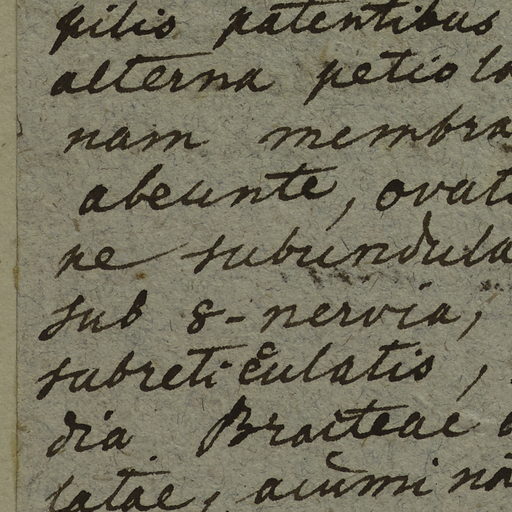 pilis patentibus
alterna petiola
nam membra
abeunte, ovat
ne subundula
sub 8-nervia,
subreticulatis,
dia Bracteae
latae, acumina